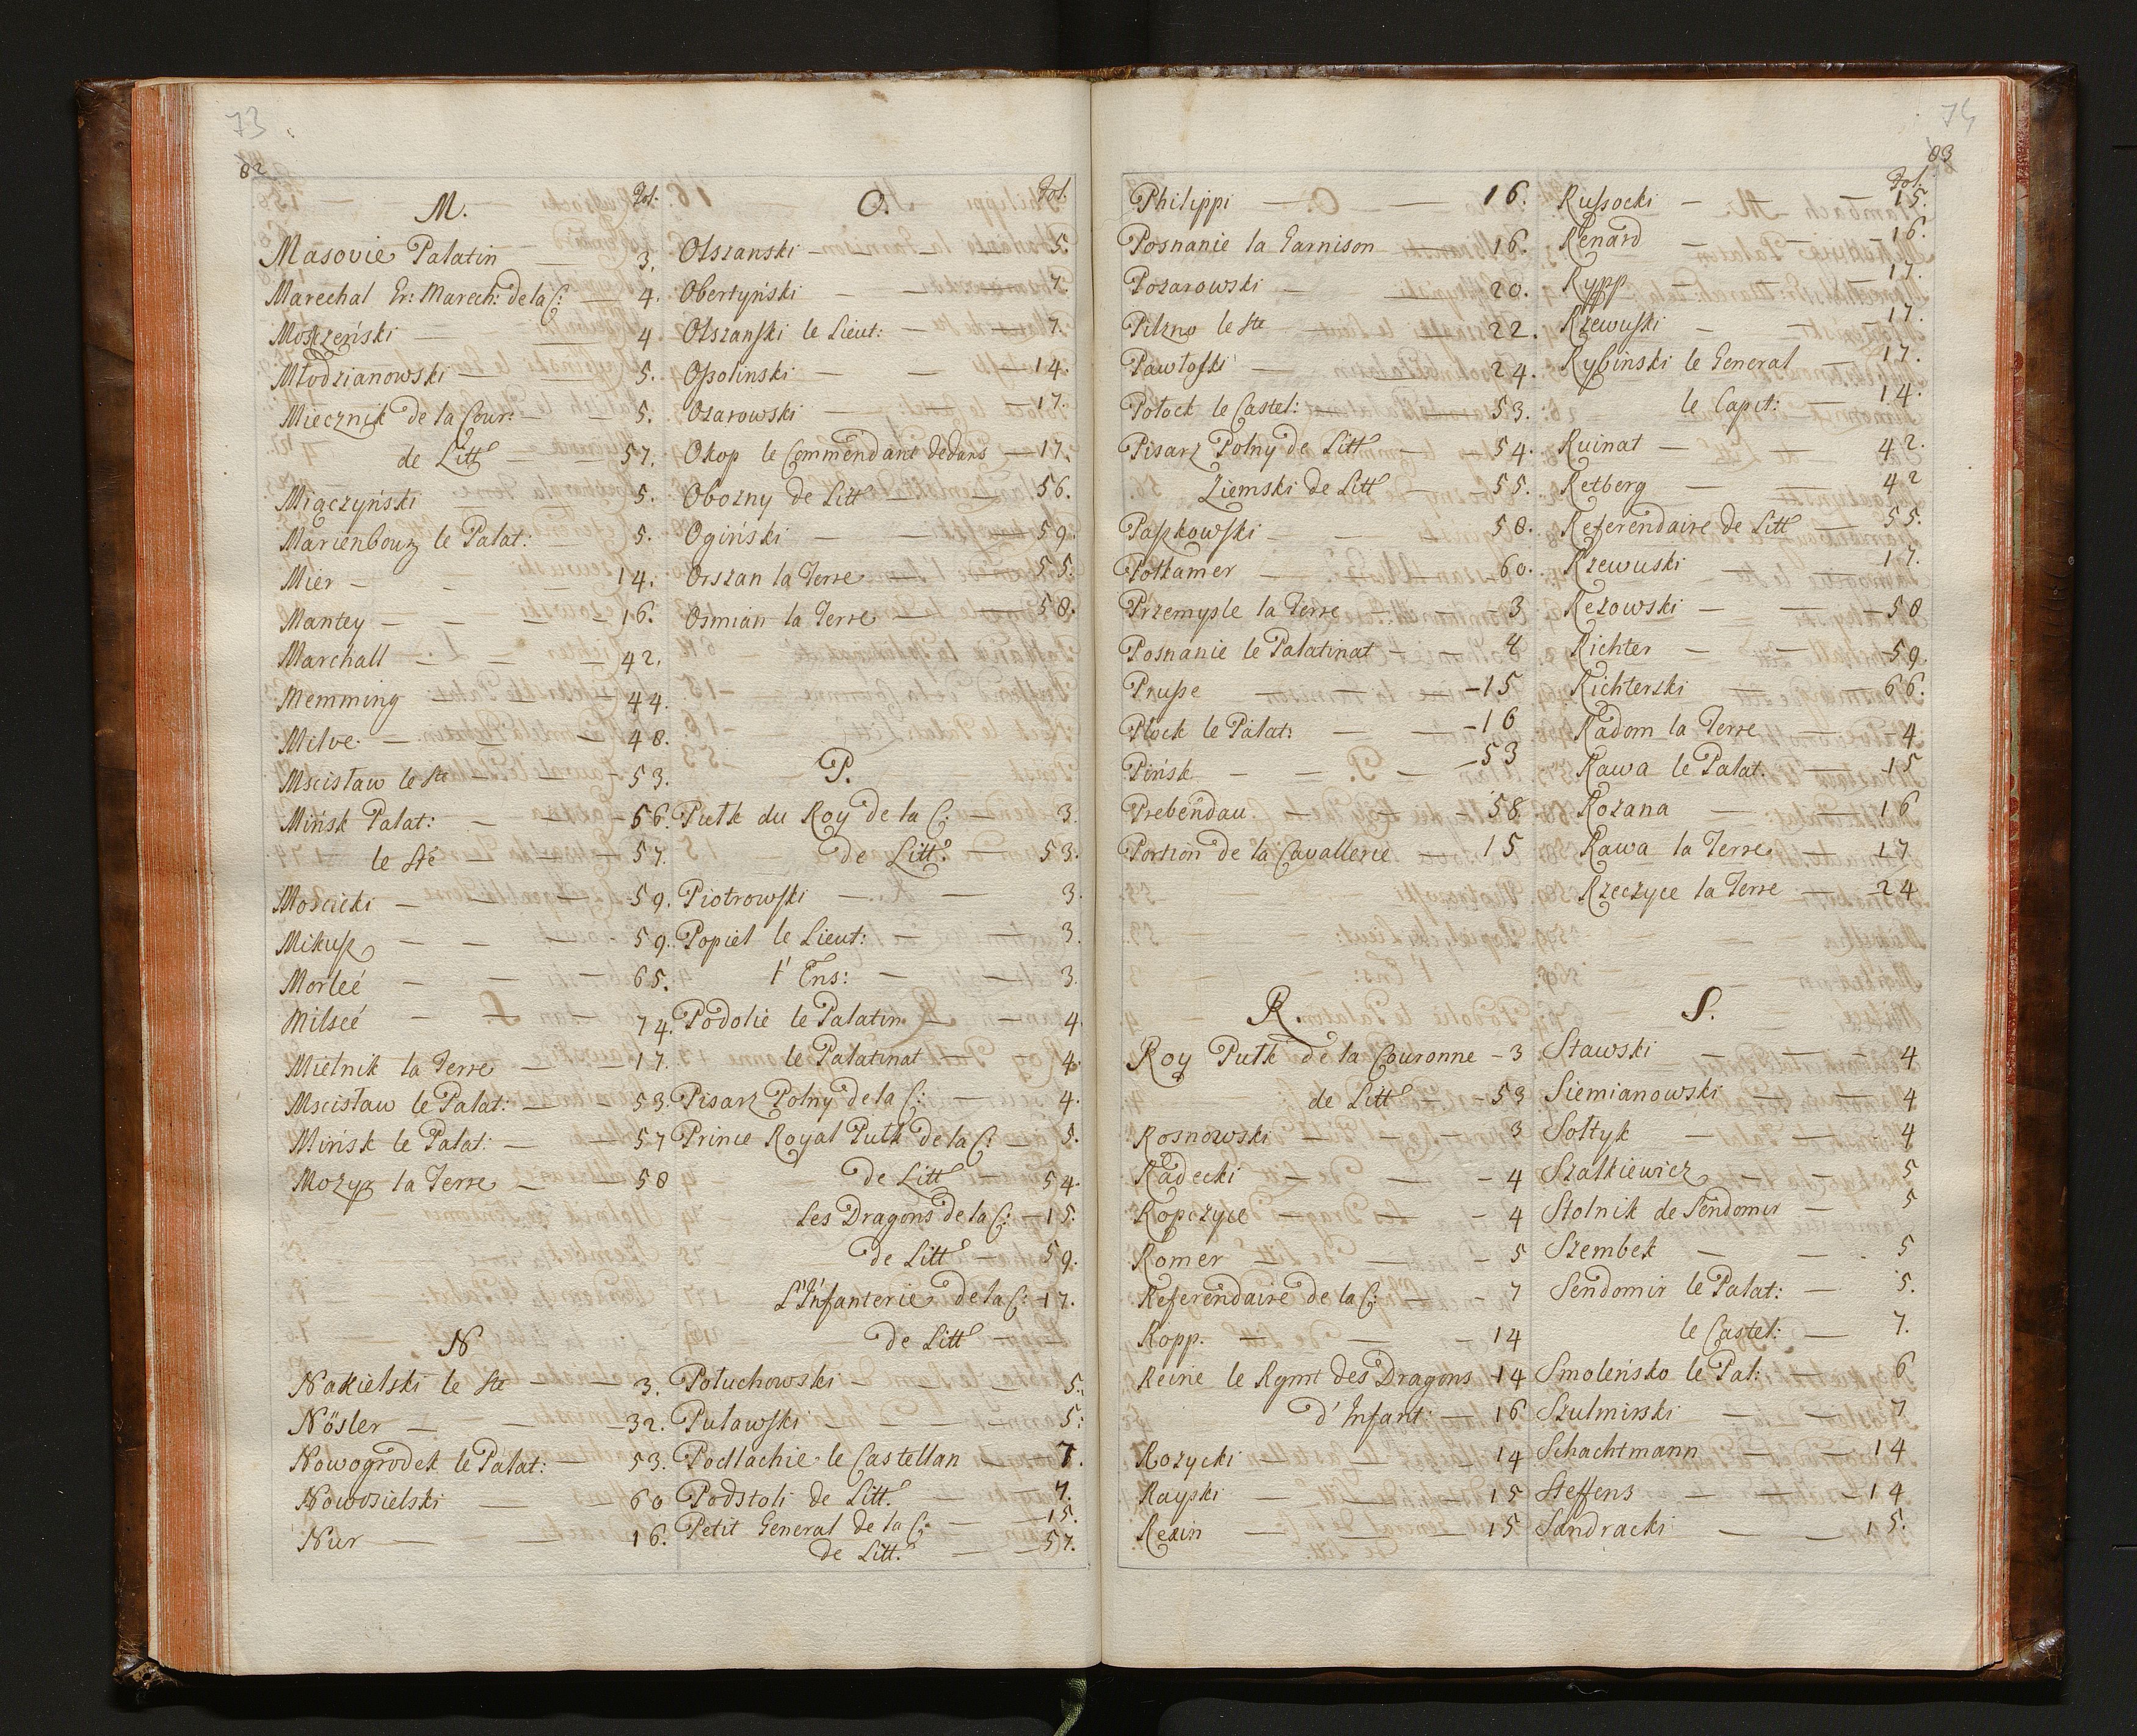 73
82
M. Fol:
Masovie Palatin — 3.
Marechal Gr: Marech: de la C: — 4.
Moszczeński — 4
Młodzianowski — 5.
Miecznik de la Cour: — 5.
de Litt — 57.
Miączyński — 5.
Marienbourg le Palat: — 5.
Mier — 14.
Mantey — 16.
Marchall — 42.
Memming — 44.
Milve — 48.
Mscisław le Ste — 53.
Mińsk Palat: — 56.
le Ste — 57.
Mościcki — 59.
Mikusz — 59.
Morleé — 65.
Milseé — 74.
Mielnik la Terre — 17.
Mscisław le Palat: — 53.
Mińsk le Palat: — 57
Mozyr la Terre — 58
N
Nakielski le Ste — 3.
Nösler — 32.
Nowogrodek le Palat: — 53.
Nowosielski — 60
Nur — 16.
O. Fol.
Olszanski — 5.
Obertyński — 7.
Olszanski le Lieut: — 7.
Opolinski — 14.
Ozarowski — 17.
Okop le Commendant dedans — 17.
Obozny de Litt — 56.
Ogiński — 59.
Orszan la Terre — 55.
Osmian la Terre — 58.
P.
Pułk du Roy de la C: — 3.
de Litt: — 53.
Piotrowski — 3.
Popiel le Lieut: — 3.
l'Ens: — 3.
Podolie le Palatin — 4
le Palatinat — 4.
Pisarz Polny de la C: — 4.
Prince Royal Pułk de la C: — 5.
de Litt — 54.
Les Dragons de la C: — 15.
de Litt — 59.
L'Infanterie de la C: 17.
de Litt —
Potuchowski — 5.
Puławski — 5:
Podlachie le Castellan — 7.
Podstoli de Litt: — 7.
Petit General de la C: — 15.
de Litt: — 57.
74
83
Philippi — 16.
Posnanie la Garnison — 16.
Pozarowski — 20.
Pilzno le Ste — 22.
Pawłoski — 24.
Połock le Castel: — 53.
Pisarz Polny de Litt — 54.
Ziemski de Litt — 55.
Paszkowski — 58.
Potkamer — 60.
Przemysle la Terre — 3
Posnanie le Palatinat — 4
Prusse — 15
Plock le Palat: — 16
Pińsk — 53
Prebendau — 58
Portion de la Cavallerie — 15
R.
Roy Pułk de la Couronne — 3
de Litt — 53
Rosnowski — 3
Radecki — 4
Ropczyce — 4
Romer — 5
Referendaire de la C: — 7
Ropp. — 14
Reine le Rgmt des Dragons — 14
d'Infant: — 16
Rozycki — 14
Rayski — 15
Rexin — 15
Fol.
Russocki — 15.
Renard — 16.
Rypp — 17.
Rzewuski — 17.
Rybinski le General — 17.
le Capit: — 14.
Ruinat — 42.
Retberg — 42
Referendaire de Litt — 55.
Rzewuski — 17.
Rezowski — 58
Richter — 59
Richterski — 66.
Radom la Terre — 4
Rawa le Palat. — 15
Rozana — 16
Rawa la Terre — 17
Rzeczyce la Terre — 24
S.
Stawski — 4
Siemianowski — 4
Sołtyk — 4
Szatkiewicz — 5
Stolnik de Sendomir — 5
Szembek — 5
Sendomir le Palat: — 5.
le Castel: — 7.
Smoleńsko le Pal: — 6
Szulminski — 7
Schachtmann — 14
Steffens — 14
Sandracki — 15.